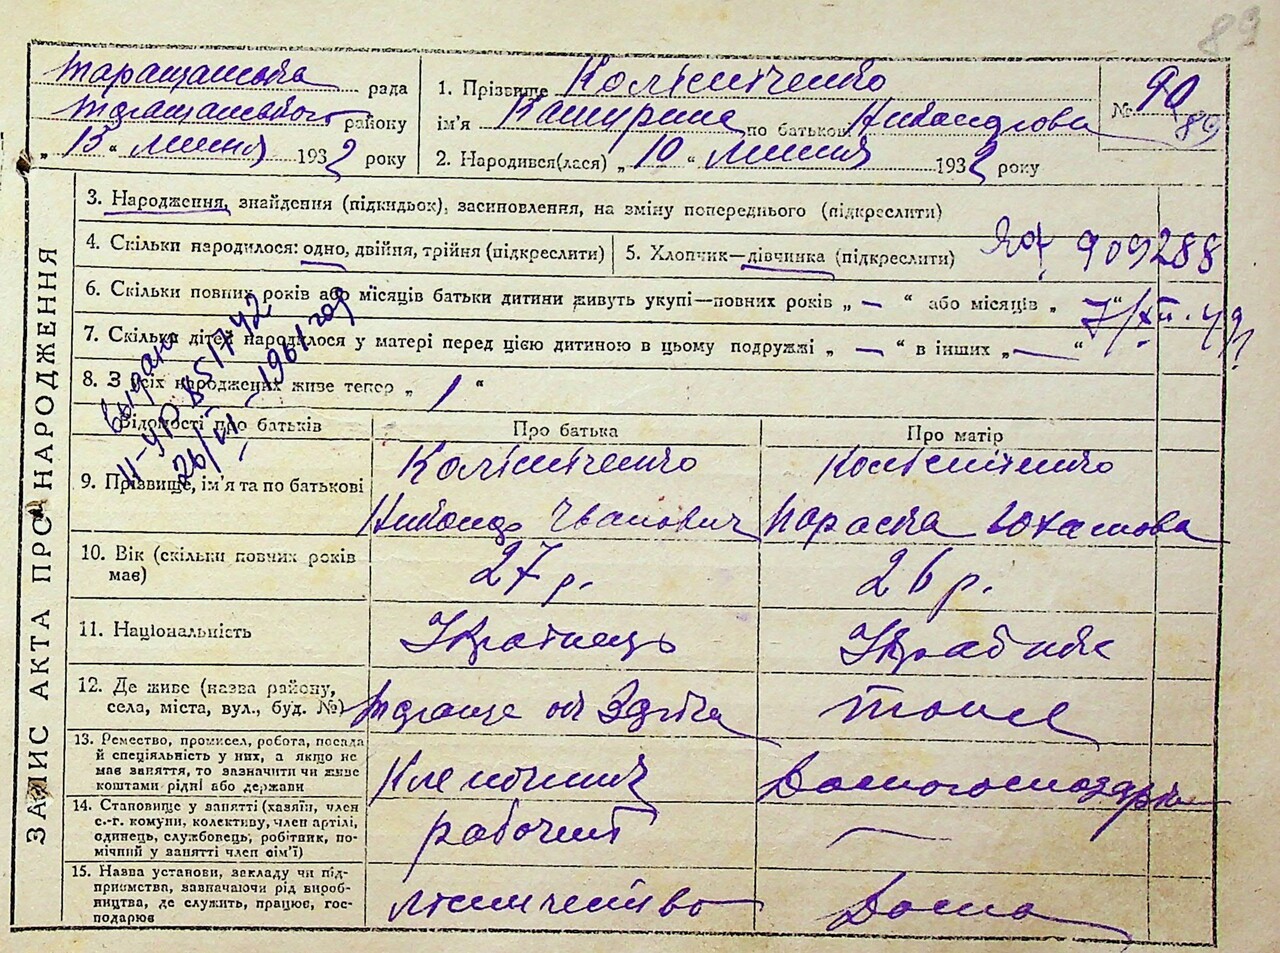 89
Таращанська рада
Таращанського району
„ 13 “ липня 1932 року
1. Прізвище Колісніченко
ім'я по батькові Никандрова
2. Народився(лася) „ 10 “ липня 1932 року
№ 90
89
ЗАПИС АКТА ПРО НАРОДЖЕННЯ
3. Народження, знайдення (підкидьок), засиновлення, на зміну попереднього (підкреслити)
4. Скільки народилося: одно, двійня, трійня (підкреслити)
5. Хлопчик—дівчинка (підкреслити)
909288
6. Скільки повних років або місяців батьки дитини живуть укупі—повних років „ — “ або місяців „ “
7/XII.49
7. Скільки дітей народилося у матері перед цією дитиною в цьому подружжі „ — “ в інших „ — “
8. З усіх народжених живе тепер „ 1 “
выдано
II-УР 851742
26/VI-1961 год
Відомості про батьків
Про батька
Про матір
9. Прізвище, ім'я та по батькові
Колісніченко
Никандр Іванович
Колісніченко
Параска
10. Вік (скільки повних років має)
27 р.
26 р.
11. Національність
Українець
Українка
12. Де живе (назва району,
села, міста, вул., буд. №)
Тараща
тоже
13. Ремество, промисел, робота, посада
й спеціяльність у них, а якщо не
має заняття, то зазначити чи живе
коштами рідні або держави
Домогосподарка
14. Становище у занятті (хазяїн, член
с.-г. комуни, колективу, член артілі,
одинець, службовець, робітник, по-
мічний у занятті член сім'ї)
рабочий
—
15. Назва установи, закладу чи під-
приємства, зазначаючи рід вироб-
ництва, де служить, працює, гос-
подарює
лісничество
Дома